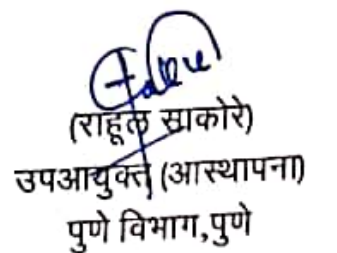 (राहूल साकोरे)
उपआयुक्त (आस्थापना)
पुणे विभाग,पुणे